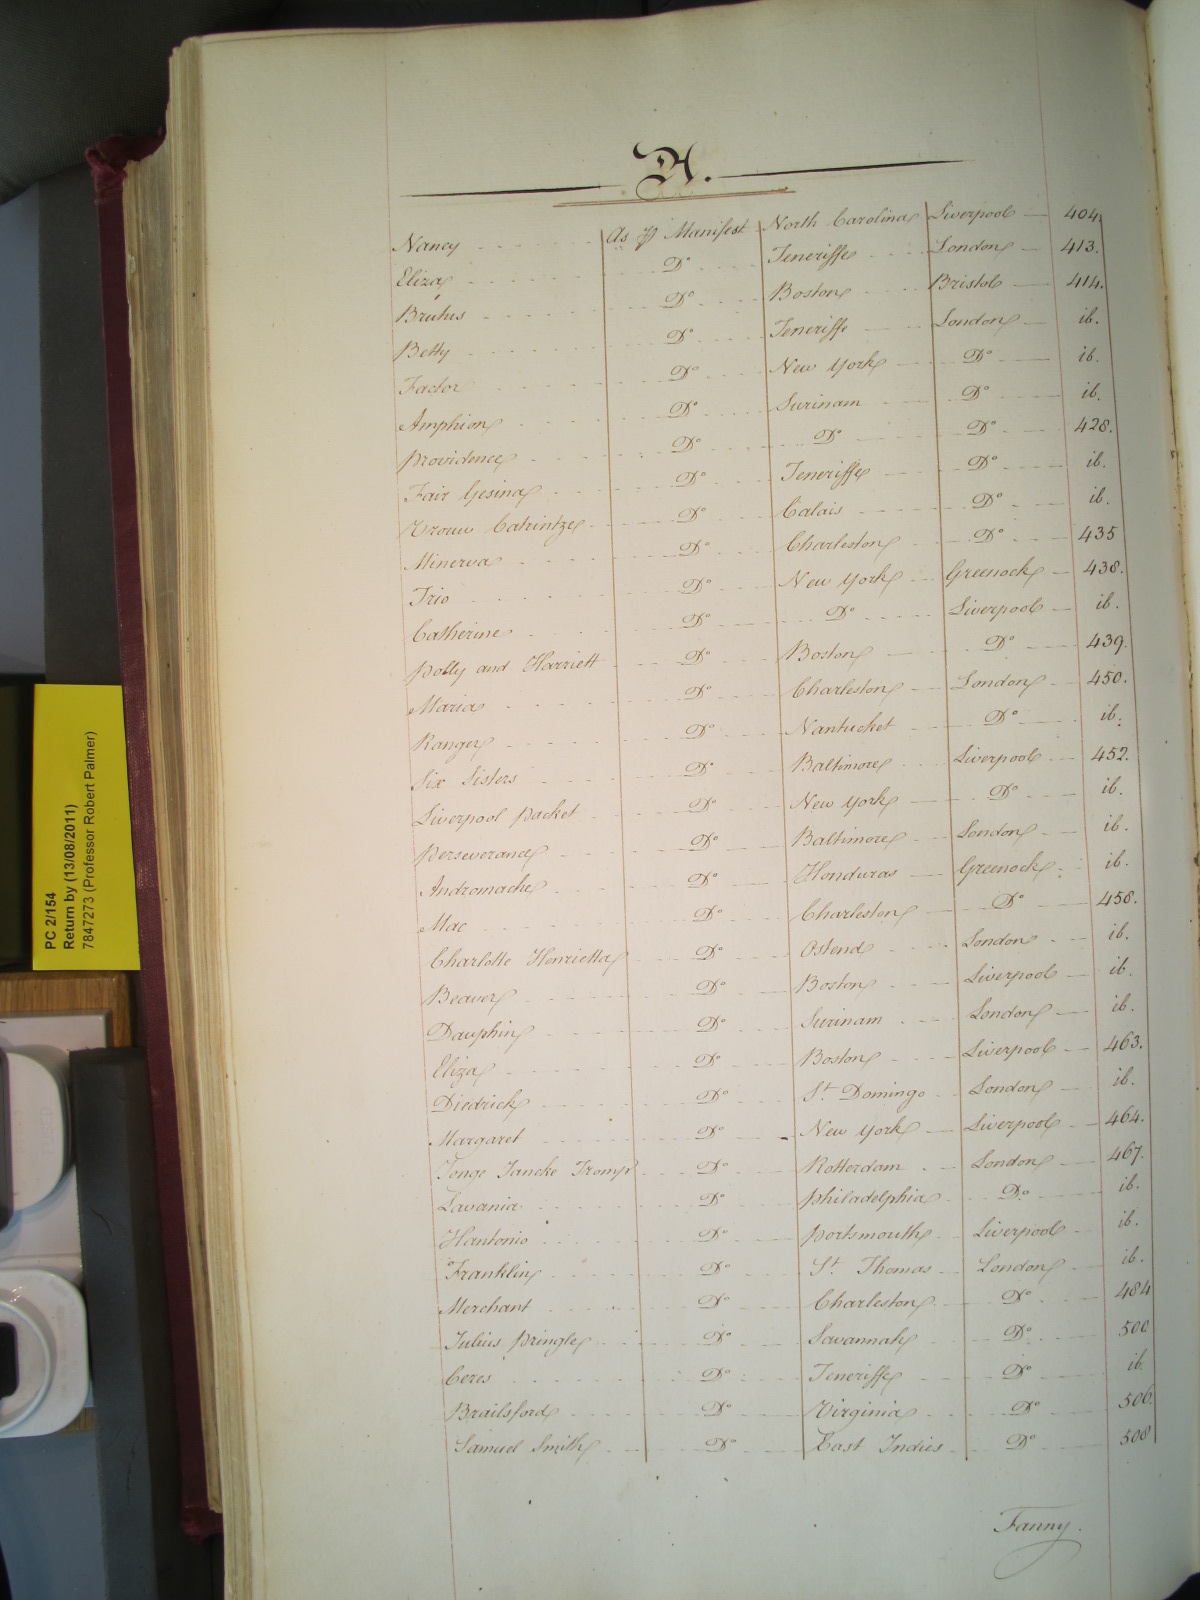 A.
Nancy As ⅌ Manifest North Carolina Liverpool 404
Eliza Do Teneriffe London 413.
Brutus Do Boston Bristol 414.
Betty Do Teneriffe London ib.
Factor Do New York Do ib.
Amphion Do Surinam Do ib.
Providence Do Do Do 428.
Fair Gesina Do Teneriffe Do ib.
Vrouw Catrintze Do Calais Do ib.
Minerva Do Charleston Do 435
Trio Do New York Greenock 438.
Catherine Do Do Liverpool ib.
Polly and Harriett Do Boston Do 439.
Maria Do Charleston London 450.
Ranger Do Nantucket Do ib.
Six Sisters Do Baltimore Liverpool 452.
Liverpool Packet Do New York Do ib.
Perseverance Do Baltimore London ib.
Andromache Do Honduras Greenock ib.
Mac Do Charleston Do 458.
Charlotte Henrietta Do Ostend London ib.
Beaver Do Boston Liverpool ib.
Dauphin Do Surinam London ib.
Eliza Do Boston Liverpool 463.
Diedrick Do St. Domingo London ib.
Margaret Do New York Liverpool 464.
Jonge Jancke Tromp Do Rotterdam London 467.
Lavania Do Philadelphia Do ib.
Hantonio Do Portsmouth Liverpool ib.
Franklin Do St. Thomas London ib.
Merchant Do Charleston Do 484
Julius Pringle Do Savannah Do 500
Ceres Do Teneriffe Do ib.
Brailsford Do Virginia Do 506.
Samuel Smith Do East Indies Do 508
Fanny.
PC 2/154
Return by (13/08/2011)
7847273 (Professor Robert Palmer)